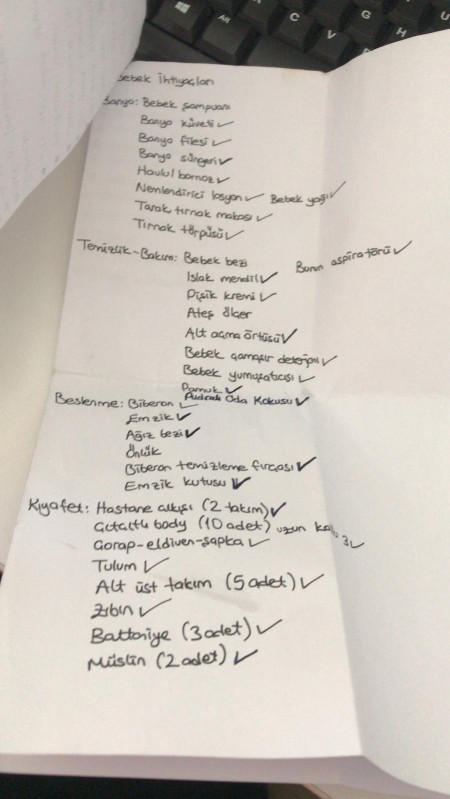 Bebek İhtiyaçları
Banyo: Bebek şampuanı
Banyo küveti ✓
Banyo filesi ✓
Banyo süngeri ✓
Havlu bornoz ✓
Nemlendirici losyon ✓ Bebek yağı ✓
Tarak tırnak makası ✓
Tırnak törpüsü ✓
Temizlik-Bakım: Bebek bezi Burun aspiratörü ✓
Islak mendil ✓
Pişik kremi ✓
Ateş ölçer
Alt açma örtüsü ✓
Bebek çamaşır deterjanı ✓
Bebek yumuşatıcısı ✓
Pamuk ✓
Beslenme: Biberon ✓ Oda Kokusu ✓
Emzik ✓
Ağız bezi ✓
Önlük
Biberon temizleme fırçası ✓
Emzik kutusu ✓
Kıyafet: Hastane çıkışı (2 takım) ✓
Çıtçıtlı body (10 adet) uzun 3 ✓
Çorap-eldiven-şapka ✓
Tulum ✓
Alt üst takım (5 adet) ✓
Zıbın ✓
Battaniye (3 adet) ✓
Müslin (2 adet) ✓